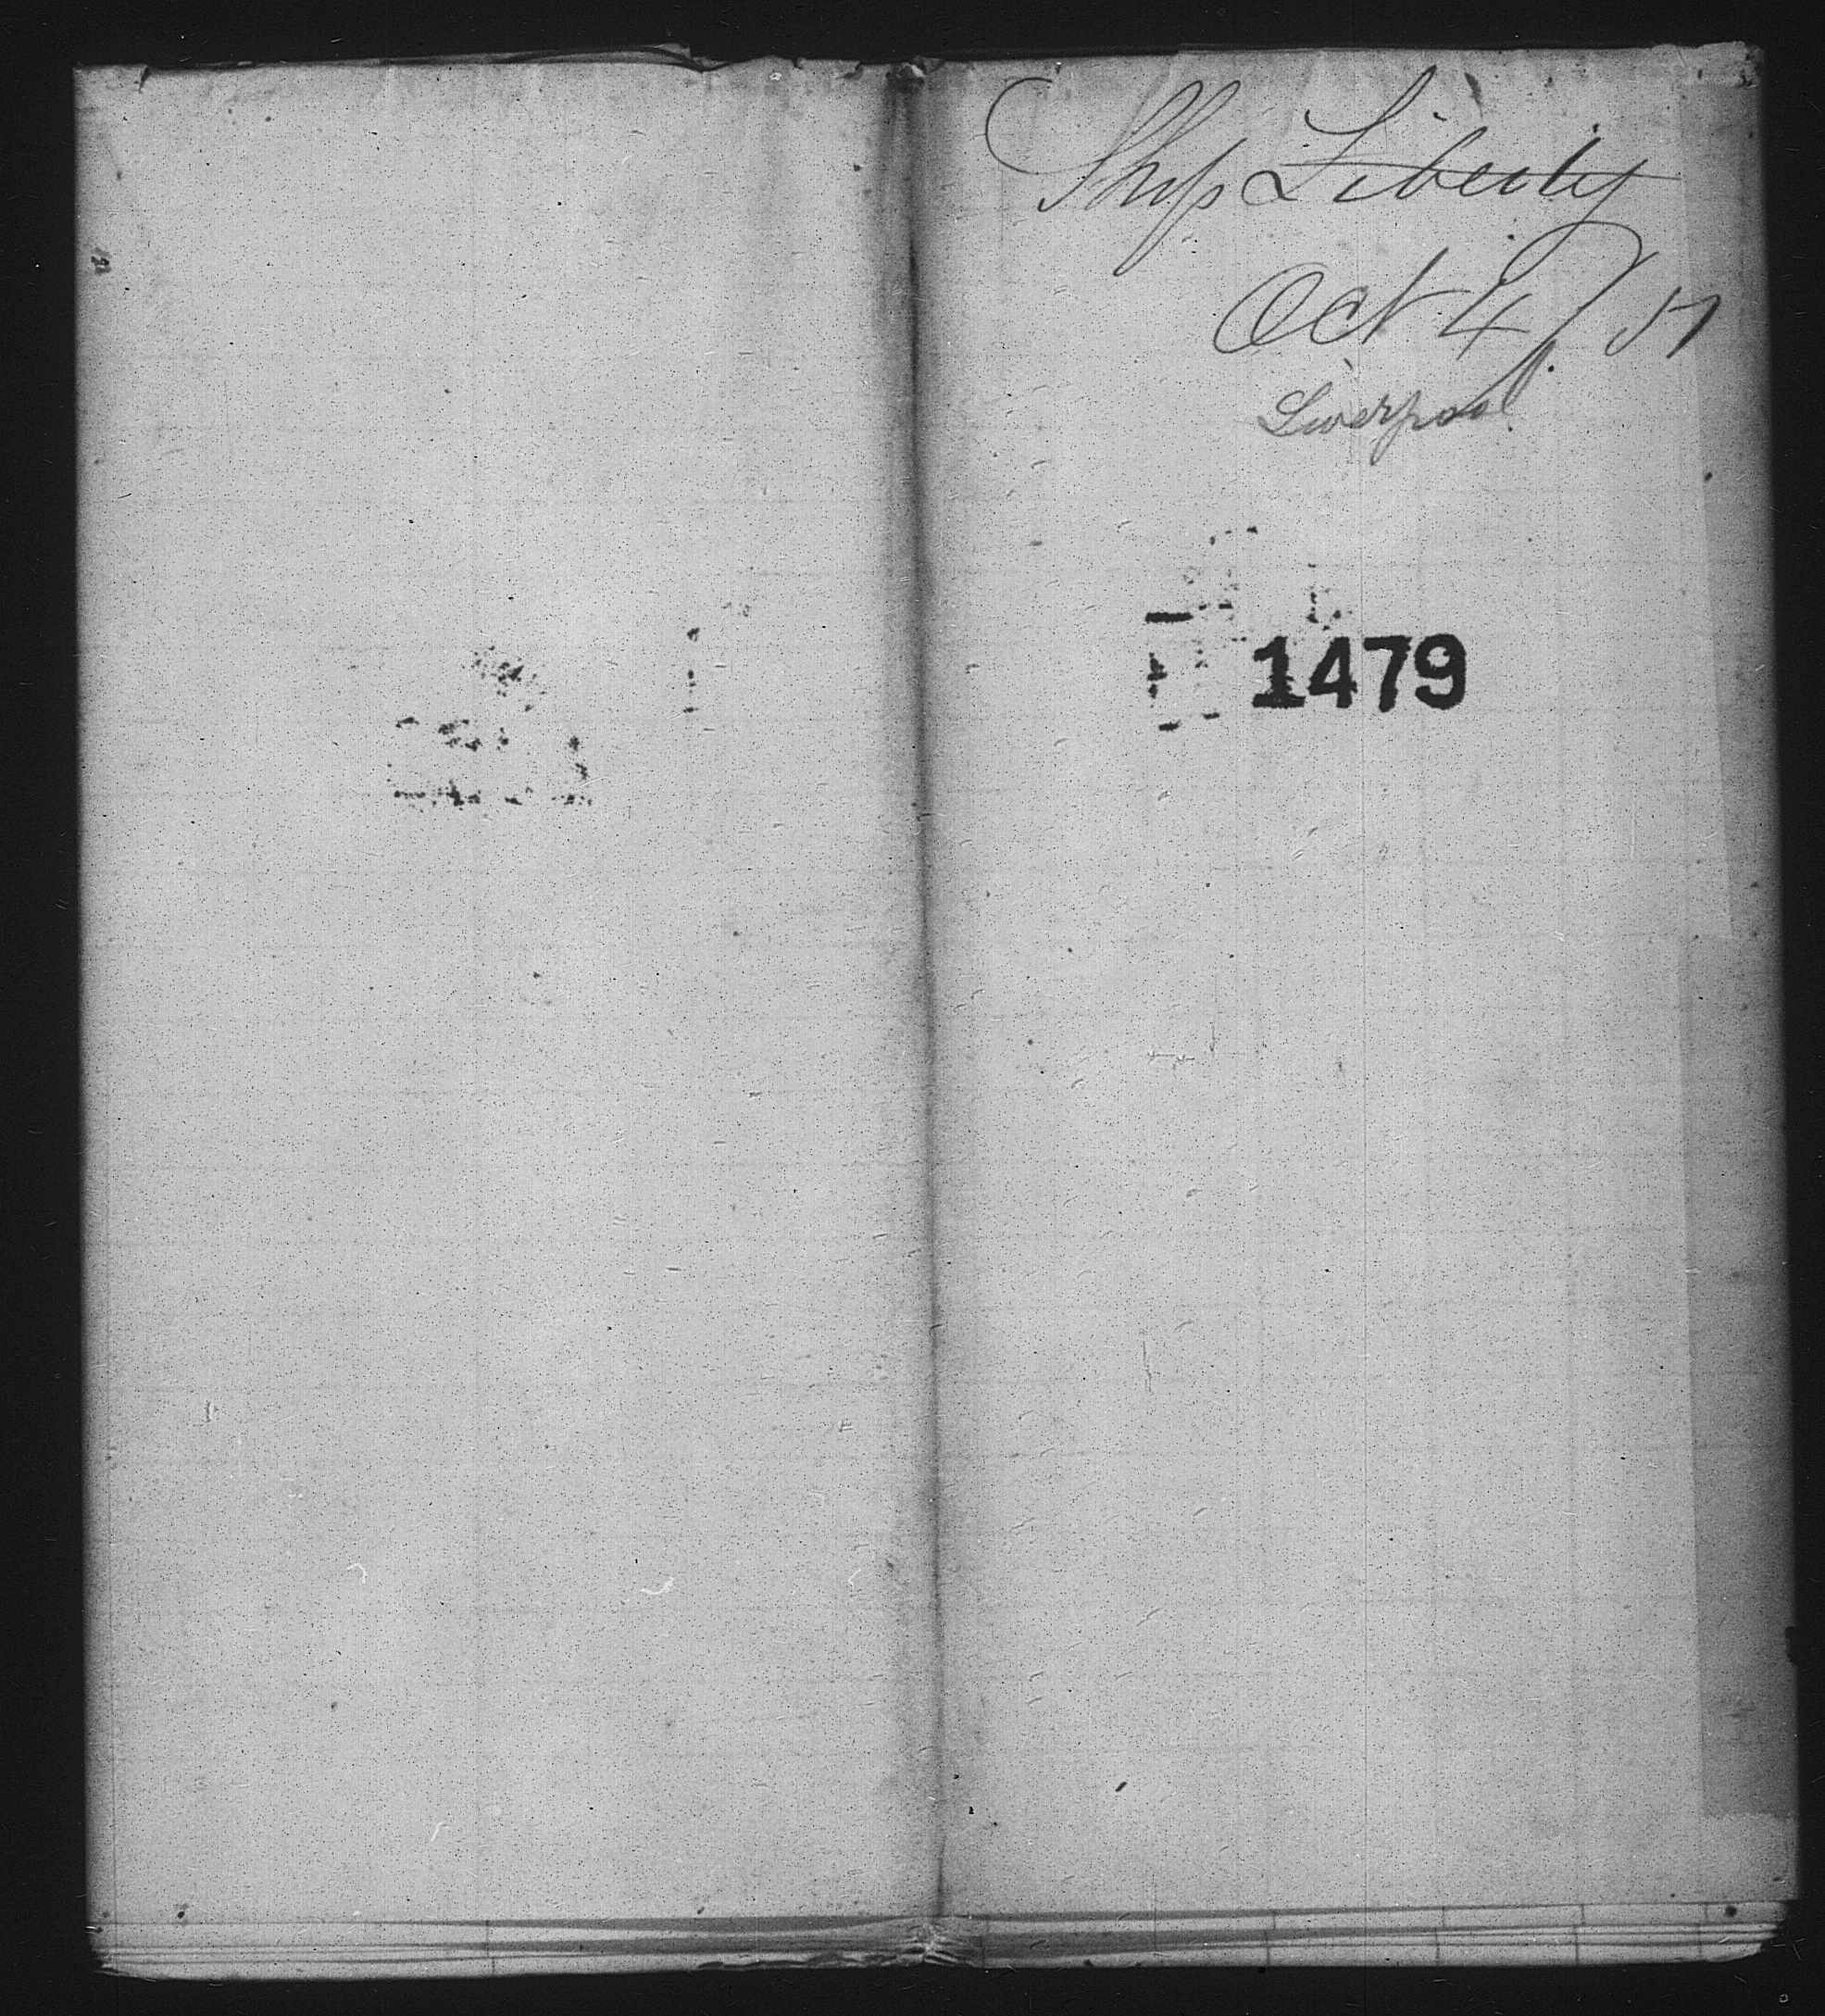 Ship Liberty
Oct 4/51
Liverpool
1479